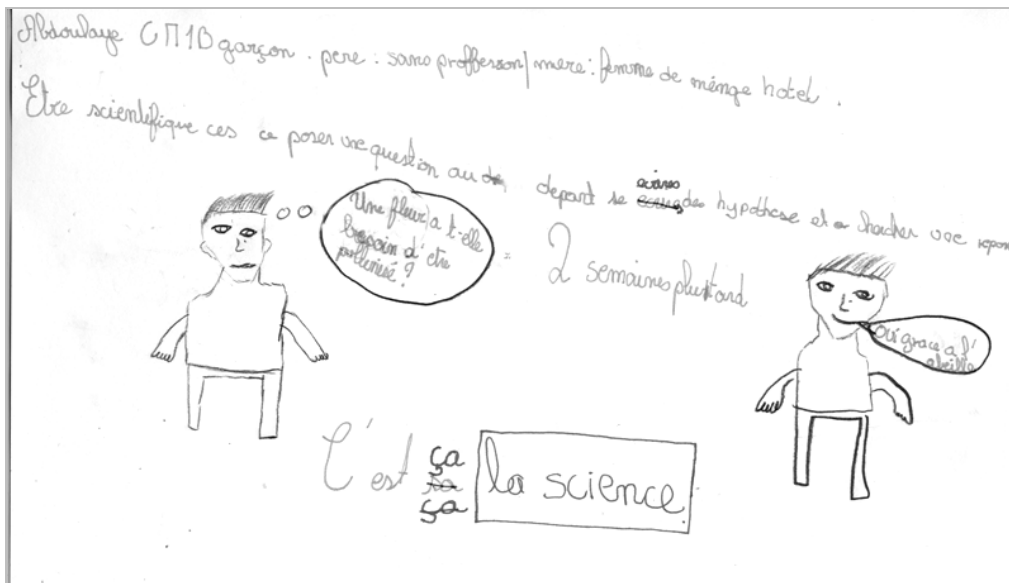 Abdoulaye CM1B garçon. pere : sans proffesson/mere : femme de ménge hotel.
Etre scientifique ces ce poser une question au depart se des hypothese et a une
Une fleur a t-elle
besoin d'etre
pollenisé ?
2 semaines plus tard
oui grace a l'
abeille
C'est ça
ça
la science